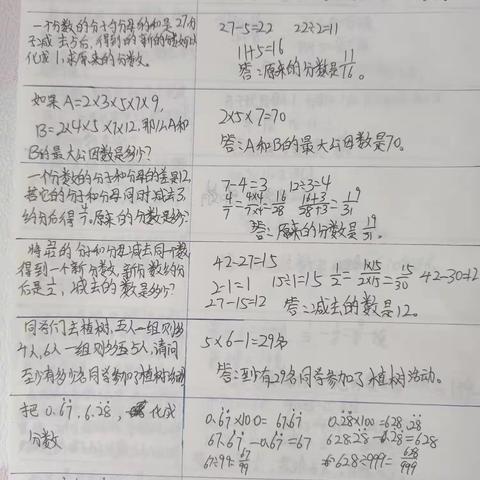 一个分数的分子与分母的和是27,分
子减去5后,得到的新的分数可以
化成1,求原来的分数。
27-5=22 22÷2=11
11+5=16
答:原来的分数是11/16。
如果A=2×3×5×7×9,
B=2×4×5×7×12,那么A和
B的最大公因数是多少?
2×5×7=70
答:A和B的最大公因数是70。
一个分数的分子和分母的差是12,
若它的分子和分母同时减去3,
约分后得4/7。原来的分数是多少?
7-4=3 12÷3=4
4/7=4×4/7×4=16/28 16+3/28+3=19/31
答:原来的分数是19/31。
将 的分子和分母减去同一个数
得到一个新分数,新分数约分
后是1/2,减去的数是多少?
42-27=15
2-1=1 15÷1=15 1/2=1×15/2×15=15/30 42-30=12
27-15=12 答:减去的数是12。
同学们去植树,五人一组则多
4人,6人一组则多5人,请问
至少有多少名同学参加了植树活动
5×6-1=29名
答:至少有29名同学参加了植树活动。
把0.6̇7̇,6.2̇8̇, 化成
分数
0.6̇7̇×100=67.6̇7̇ 0.2̇8̇×100=628.2̇8̇
67.6̇7̇-0.6̇7̇=67 628.2̇8̇-6.2̇8̇=628
67÷99=67/99 628÷999=628/999